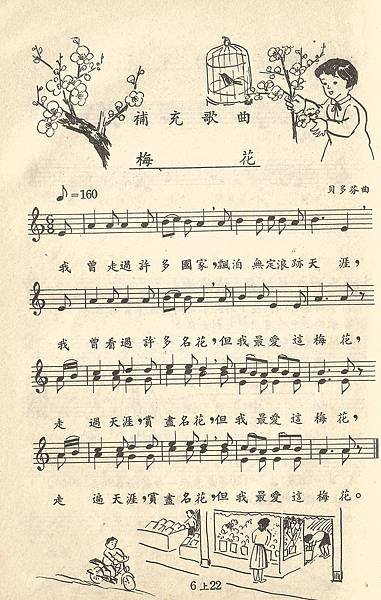 補充歌曲
梅花
♪=160
貝多芬曲
我曾走過許多國家，飄泊無定浪跡天涯，
我曾看過許多名花，但我最愛這梅花，
走過天涯，賞盡名花，但我最愛這梅花，
走遍天涯，賞盡名花，但我最愛這梅花。
6上22